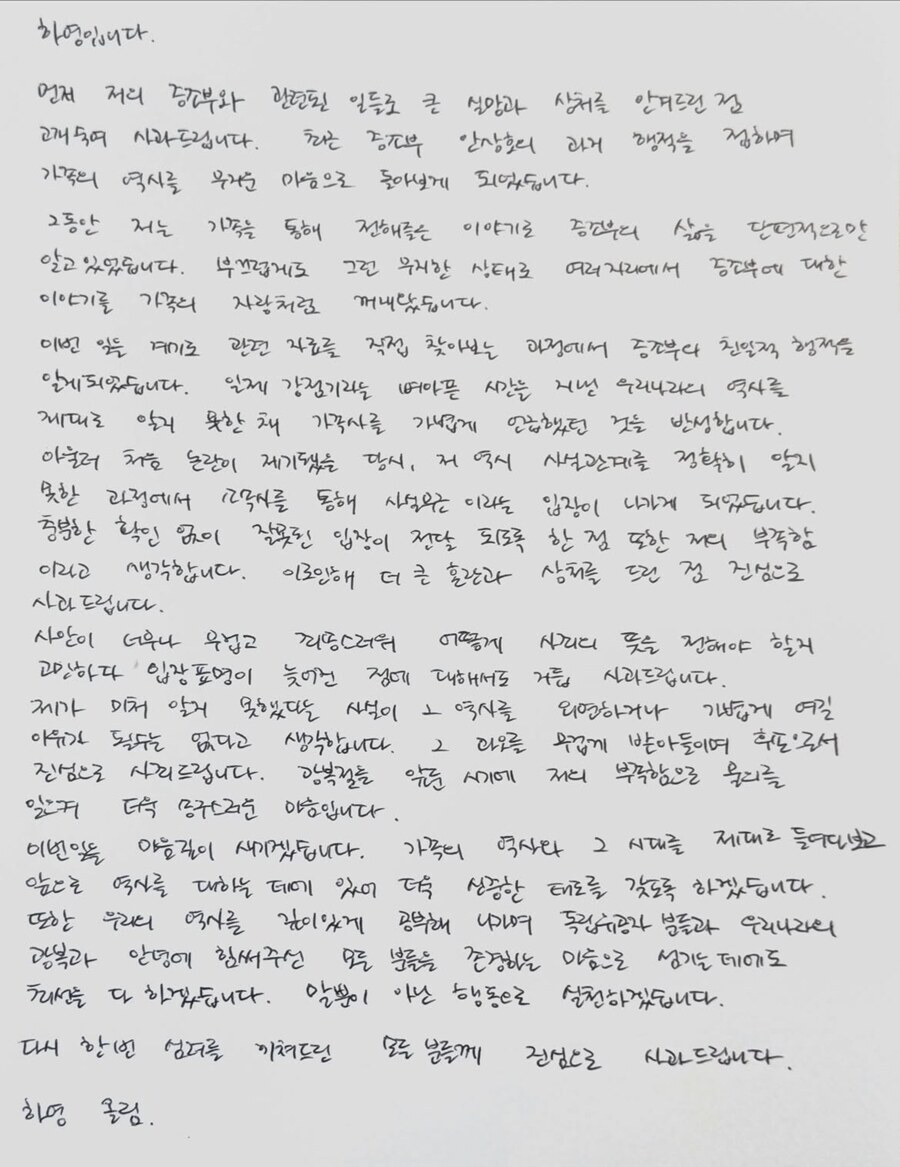 하영입니다.
먼저 저의 증조부와 관련된 일들로 큰 실망과 상처를 안겨드린 점
고개숙여 사과드립니다. 최근 증조부 안상호의 과거 행적을 접하며
가족의 역사를 무거운 마음으로 돌아보게 되었습니다.
그동안 저는 가족을 통해 전해들은 이야기로 증조부의 삶을 단편적으로만
알고있었습니다. 부끄럽게도 그런 무지한 상태로 여러자리에서 증조부에 대한
이야기를 가족의 자랑처럼 꺼내왔습니다.
이번 일을 계기로 관련 자료를 직접 찾아보는 과정에서 증조부의 친일적 행적을
알게되었습니다. 일제 강점기라는 뼈아픈 시간을 지닌 우리나라의 역사를
제대로 알지 못한 채 가족사를 가볍게 언급했던 것을 반성합니다.
아울러 처음 논란이 제기됐을 당시, 저 역시 사실관계를 정확히 알지
못한 과정에서 소속사를 통해 사실무근 이라는 입장이 나가게 되었습니다.
충분한 확인 없이 잘못된 입장이 전달 되도록 한 점 또한 저의 부족함
이라고 생각합니다. 이로인해 더 큰 혼란과 상처를 드린 점 진심으로
사과드립니다.
사안이 너무나 무겁고 죄송스러워 어떻게 사죄의 뜻을 전해야 할지
고민하다 입장표명이 늦어진 점에 대해서도 거듭 사과드립니다.
제가 미처 알지 못했다는 사실이 그 역사를 외면하거나 가볍게 여길
이유가 될수는 없다고 생각합니다. 그 과오를 무겁게 받아들이며 후손으로서
진심으로 사죄드립니다. 광복절을 앞둔 시기에 저의 부족함으로 물의를
일으켜 더욱 송구스러운 마음입니다.
이번일을 마음깊이 새기겠습니다. 가족의 역사와 그 시대를 제대로 들여다보고
앞으로 역사를 대하는 데에 있어 더욱 신중한 태도를 갖도록 하겠습니다.
또한 우리의 역사를 깊이있게 공부해 나가며 독립유공자 분들과 우리나라의
광복과 안녕에 힘써주신 모든 분들을 존경하는 마음으로 섬기는 데에도
최선을 다 하겠습니다. 말뿐이 아닌 행동으로 실천하겠습니다.
다시 한번 심려를 끼쳐드린 모든 분들께 진심으로 사과드립니다.
하영 올림.